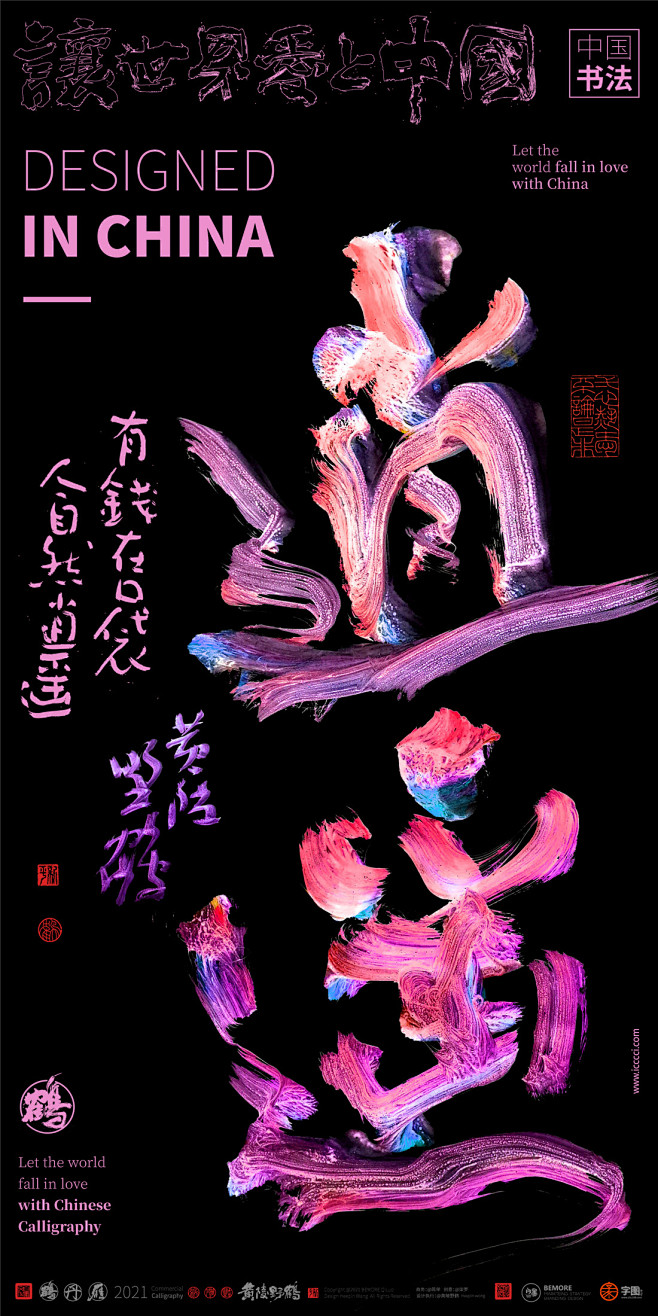 讓世界愛上中國
中国
书法
DESIGNED
IN CHINA
Let the
world fall in love
with China
逍
遥
有錢在口袋
人自然逍遥
黄陵
野鶴
www.icccci.com
鶴
Let the world
fall in love
with Chinese
Calligraphy
2021
Commercial
Calligraphy
黄陵野鶴
BEMORE
字圈